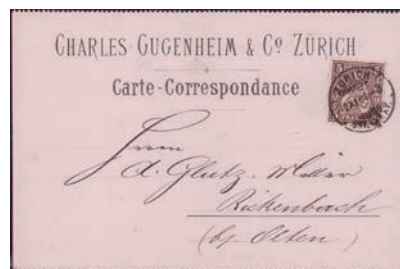 CHARLES GUGENHEIM & Cº ZÜRICH
Carte-Correspondance
5
ZÜRICH
Herrn
A. Glutz. Müller
Rickenbach
(bj Olten)